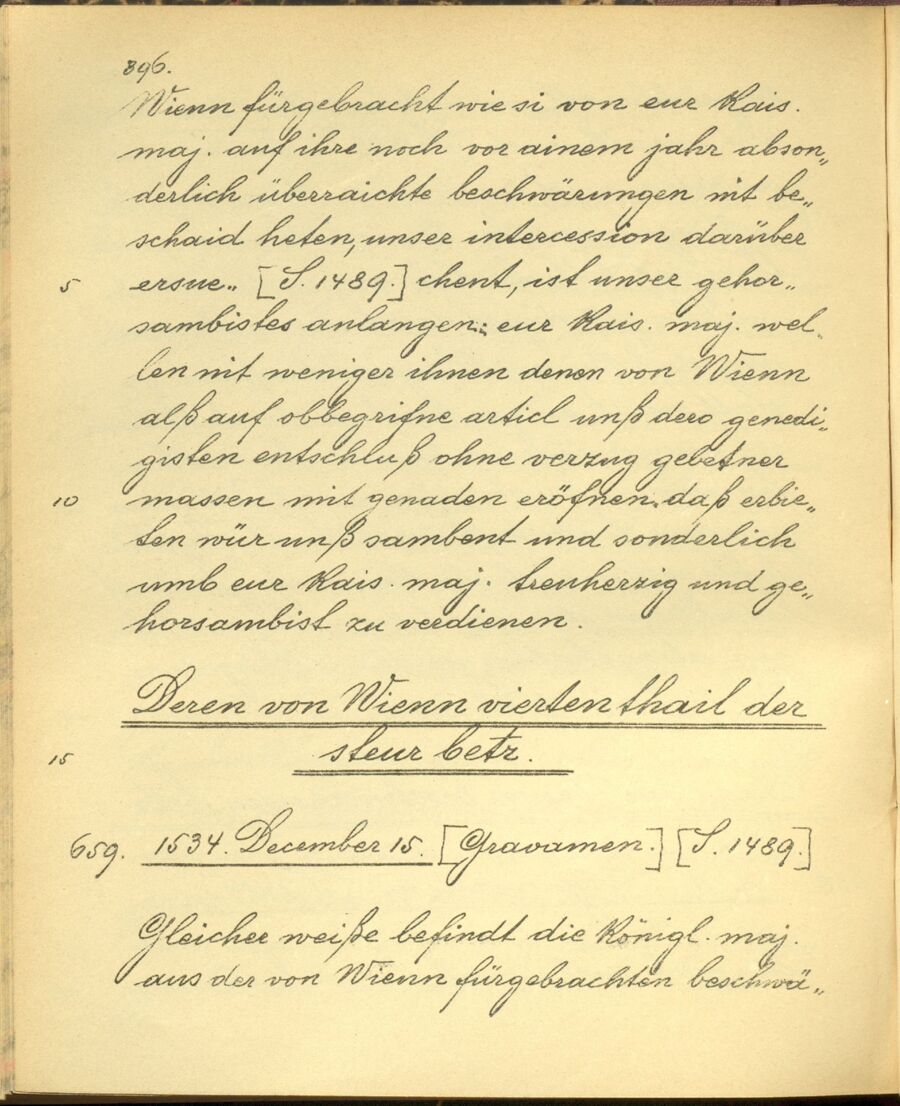 896.
Wienn fürgebracht wie si von eur Kais.
maj. auf ihre noch vor ainem jahr abson„
derlich überraichte beschwärungen nit be„
schaid heten, unser intercession darüber
5 ersue„ [S. 1489.] chent, ist unser gehor„
sambistes anlangen: eur Kais. maj. wel„
len nit weniger ihnen denen von Wienn
alß auf obbegrifne articl unß dero genedi„
gisten entschluß ohne verzug gebetner
10 massen mit genaden eröfnen. daß erbie„
ten wür unß sambent und sonderlich
umb eur Kais. maj. treuherzig und ge„
horsambist zu verdienen.
Deren von Wienn vierten thail der
15 steur betr.
659. 1534. December 15. [Gravamen.] [S. 1489.]
Gleicher weiße befindt die Königl. maj.
aus der von Wienn fürgebrachten beschwä„